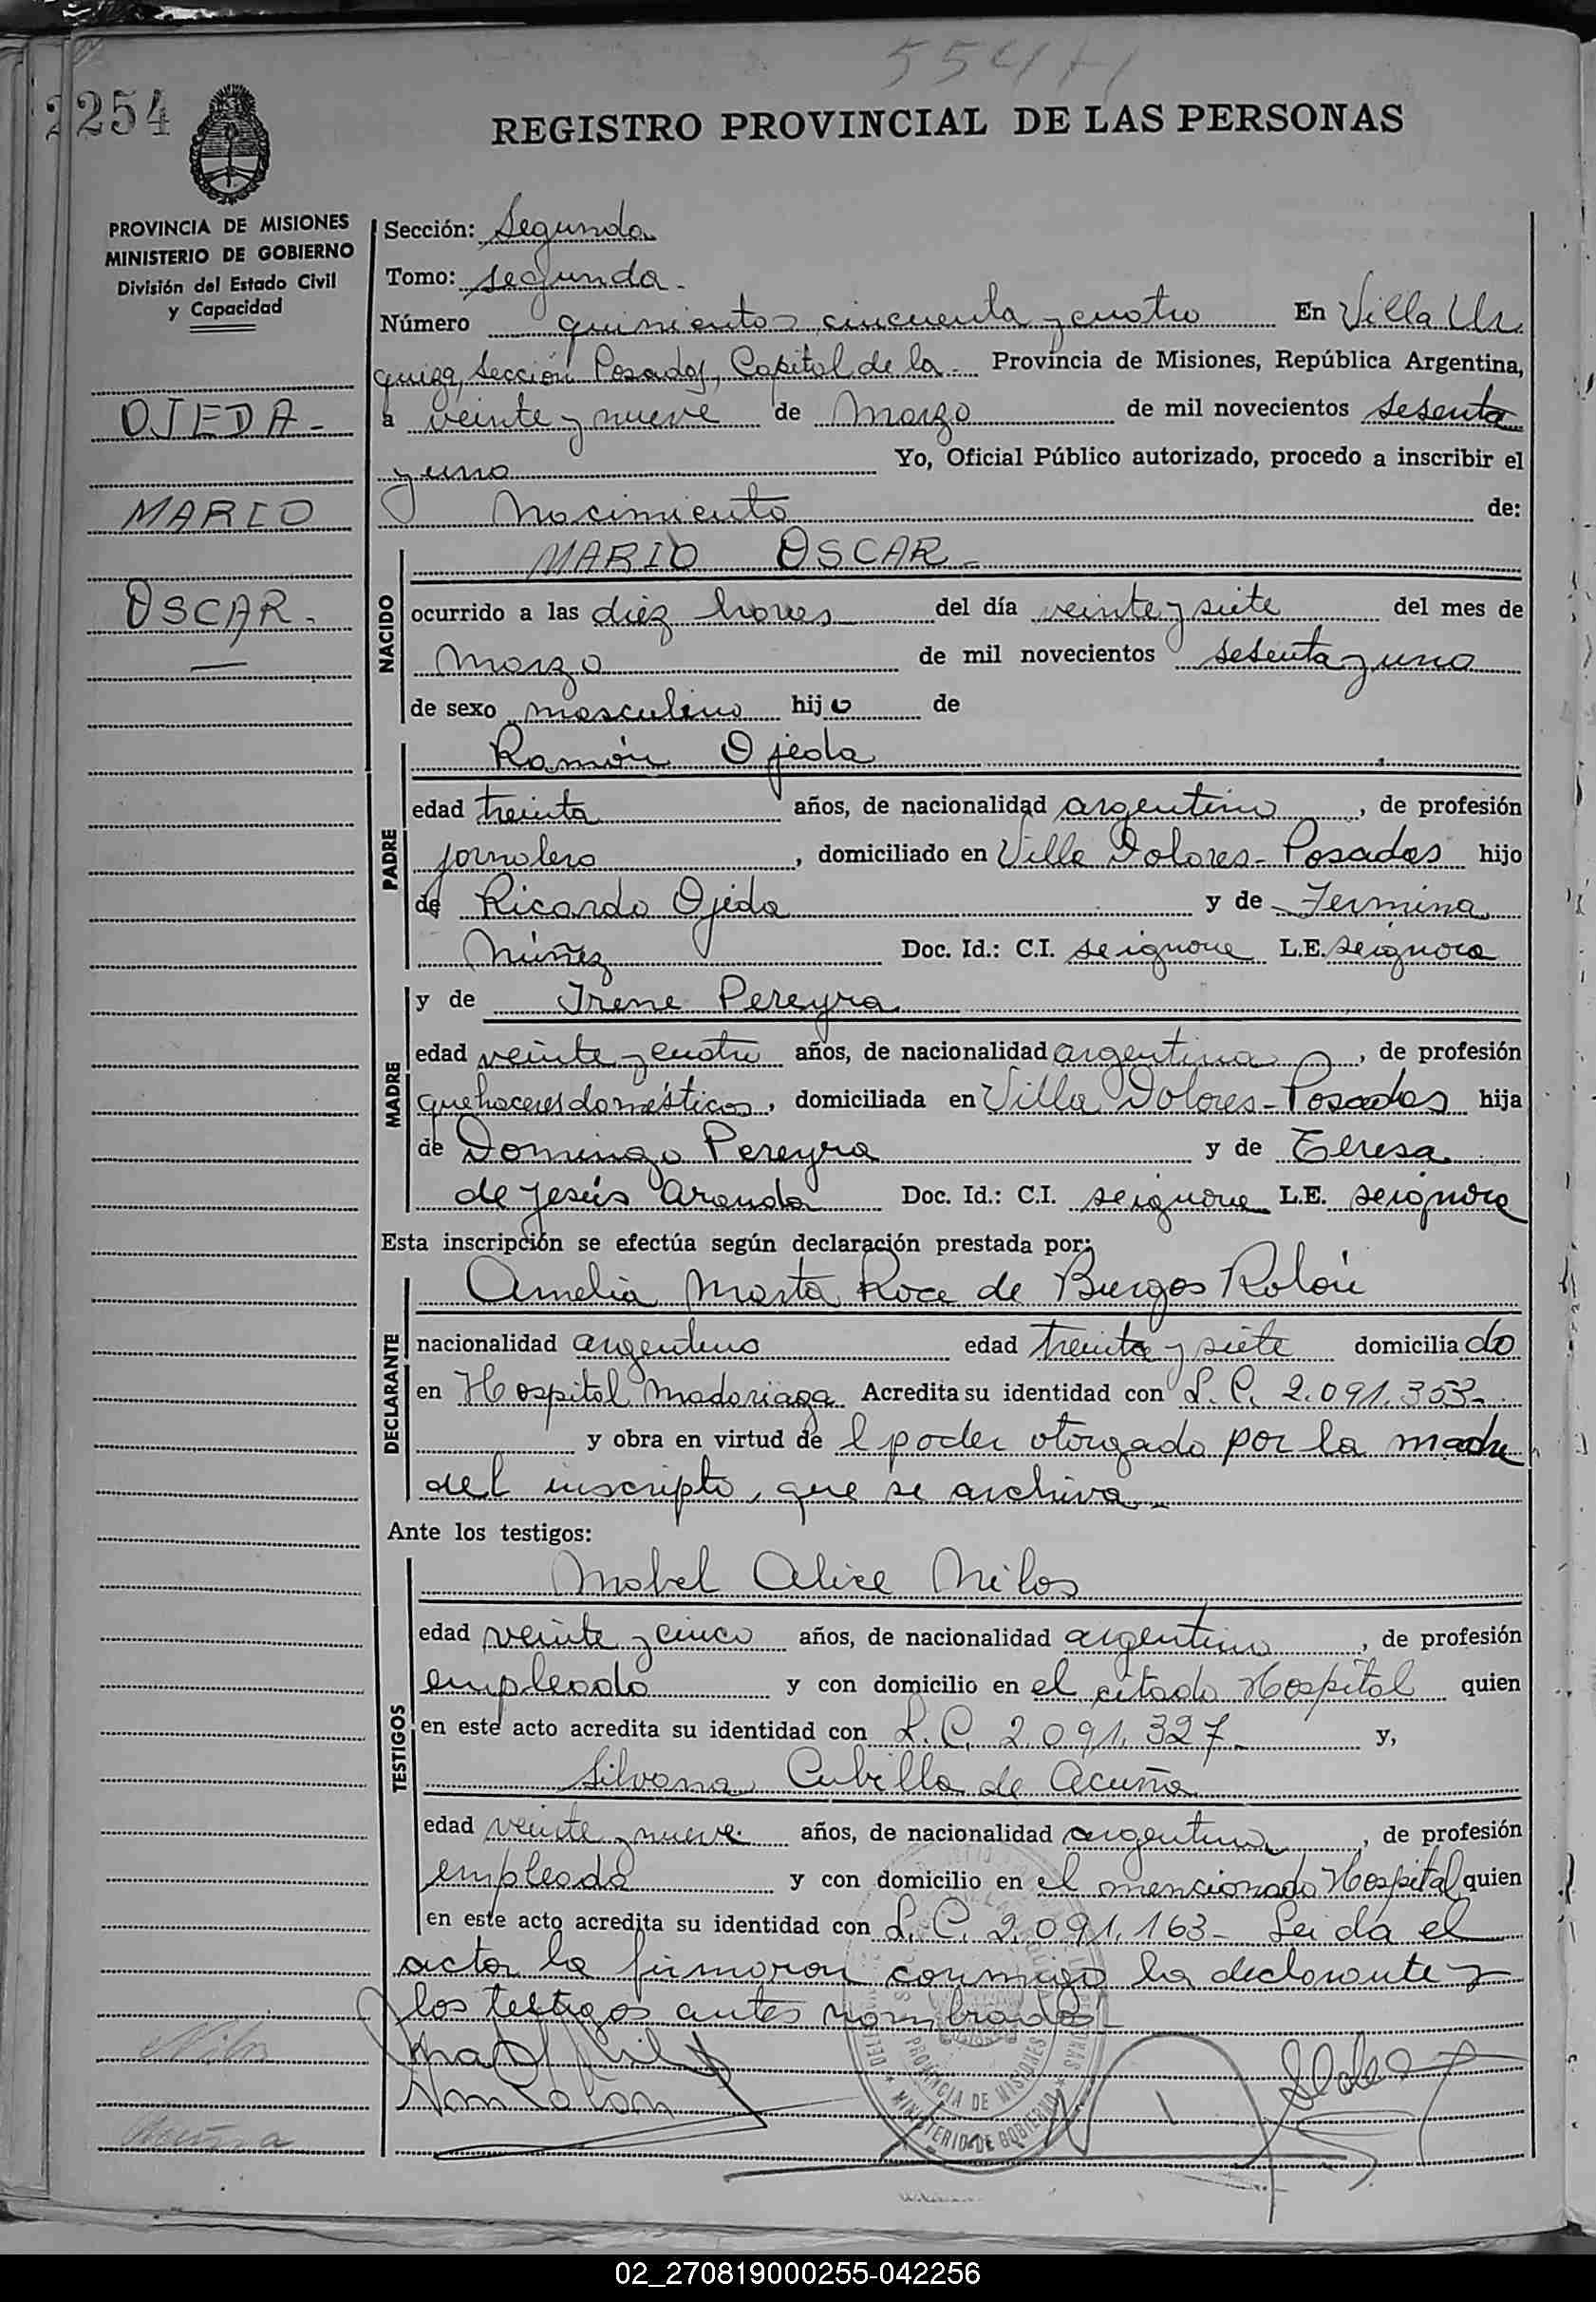 554
2254
REGISTRO PROVINCIAL DE LAS PERSONAS
PROVINCIA DE MISIONES
MINISTERIO DE GOBIERNO
División del Estado Civil
y Capacidad
OJEDA-
MARIO
OSCAR-
Sección: Segunda
Tomo: segunda-
Número quinientos cincuenta y cuatro En Villa Ur
quiza, Sección Posadas, Capital de la- Provincia de Misiones, República Argentina,
a veinte y nueve de marzo de mil novecientos sesenta
y uno Yo, Oficial Público autorizado, procedo a inscribir el
nacimiento de:
NACIDO
MARIO OSCAR-
ocurrido a las diez horas del día veinte y siete del mes de
marzo de mil novecientos sesenta y uno
de sexo masculino hijo de
PADRE
Ramón Ojeda
edad treinta años, de nacionalidad argentino, de profesión
jornalero, domiciliado en Villa Dolores-Posadas hijo
de Ricardo Ojeda y de Fermina
Núñez Doc. Id.: C.I. se ignora L.E. se ignora
MADRE
y de Irene Pereyra
edad veinte y cuatro años, de nacionalidad argentina, de profesión
quehaceres domésticos, domiciliada en Villa Dolores-Posadas hija
de Domingo Pereyra y de Teresa
de Jesús Aranda Doc. Id.: C.I. se ignora L.E. se ignora
Esta inscripción se efectúa según declaración prestada por:
DECLARANTE
Amelia Marta Roce de Burgos Rolón
nacionalidad argentina edad treinta y siete domiciliado
en Hospital Madariaga Acredita su identidad con L.C. 2.091.353-
y obra en virtud del poder otorgado por la madre
del inscripto, que se archiva-
Ante los testigos:
TESTIGOS
Mabel Alice Milos
edad veinte y cinco años, de nacionalidad argentina, de profesión
empleada y con domicilio en el citado Hospital quien
en este acto acredita su identidad con L.C. 2.091.327- y,
Silvana Cubilla de Acuña
edad veinte y nueve años, de nacionalidad argentina, de profesión
empleada y con domicilio en el mencionado Hospital quien
en este acto acredita su identidad con L.C. 2.091.163- Leida el
acta la firmaron conmigo la declarante y
los testigos antes nombrados-
Milos
Acuña
PROVINCIA DE MISIONES
MINISTERIO DE GOBIERNO
02_270819000255-042256